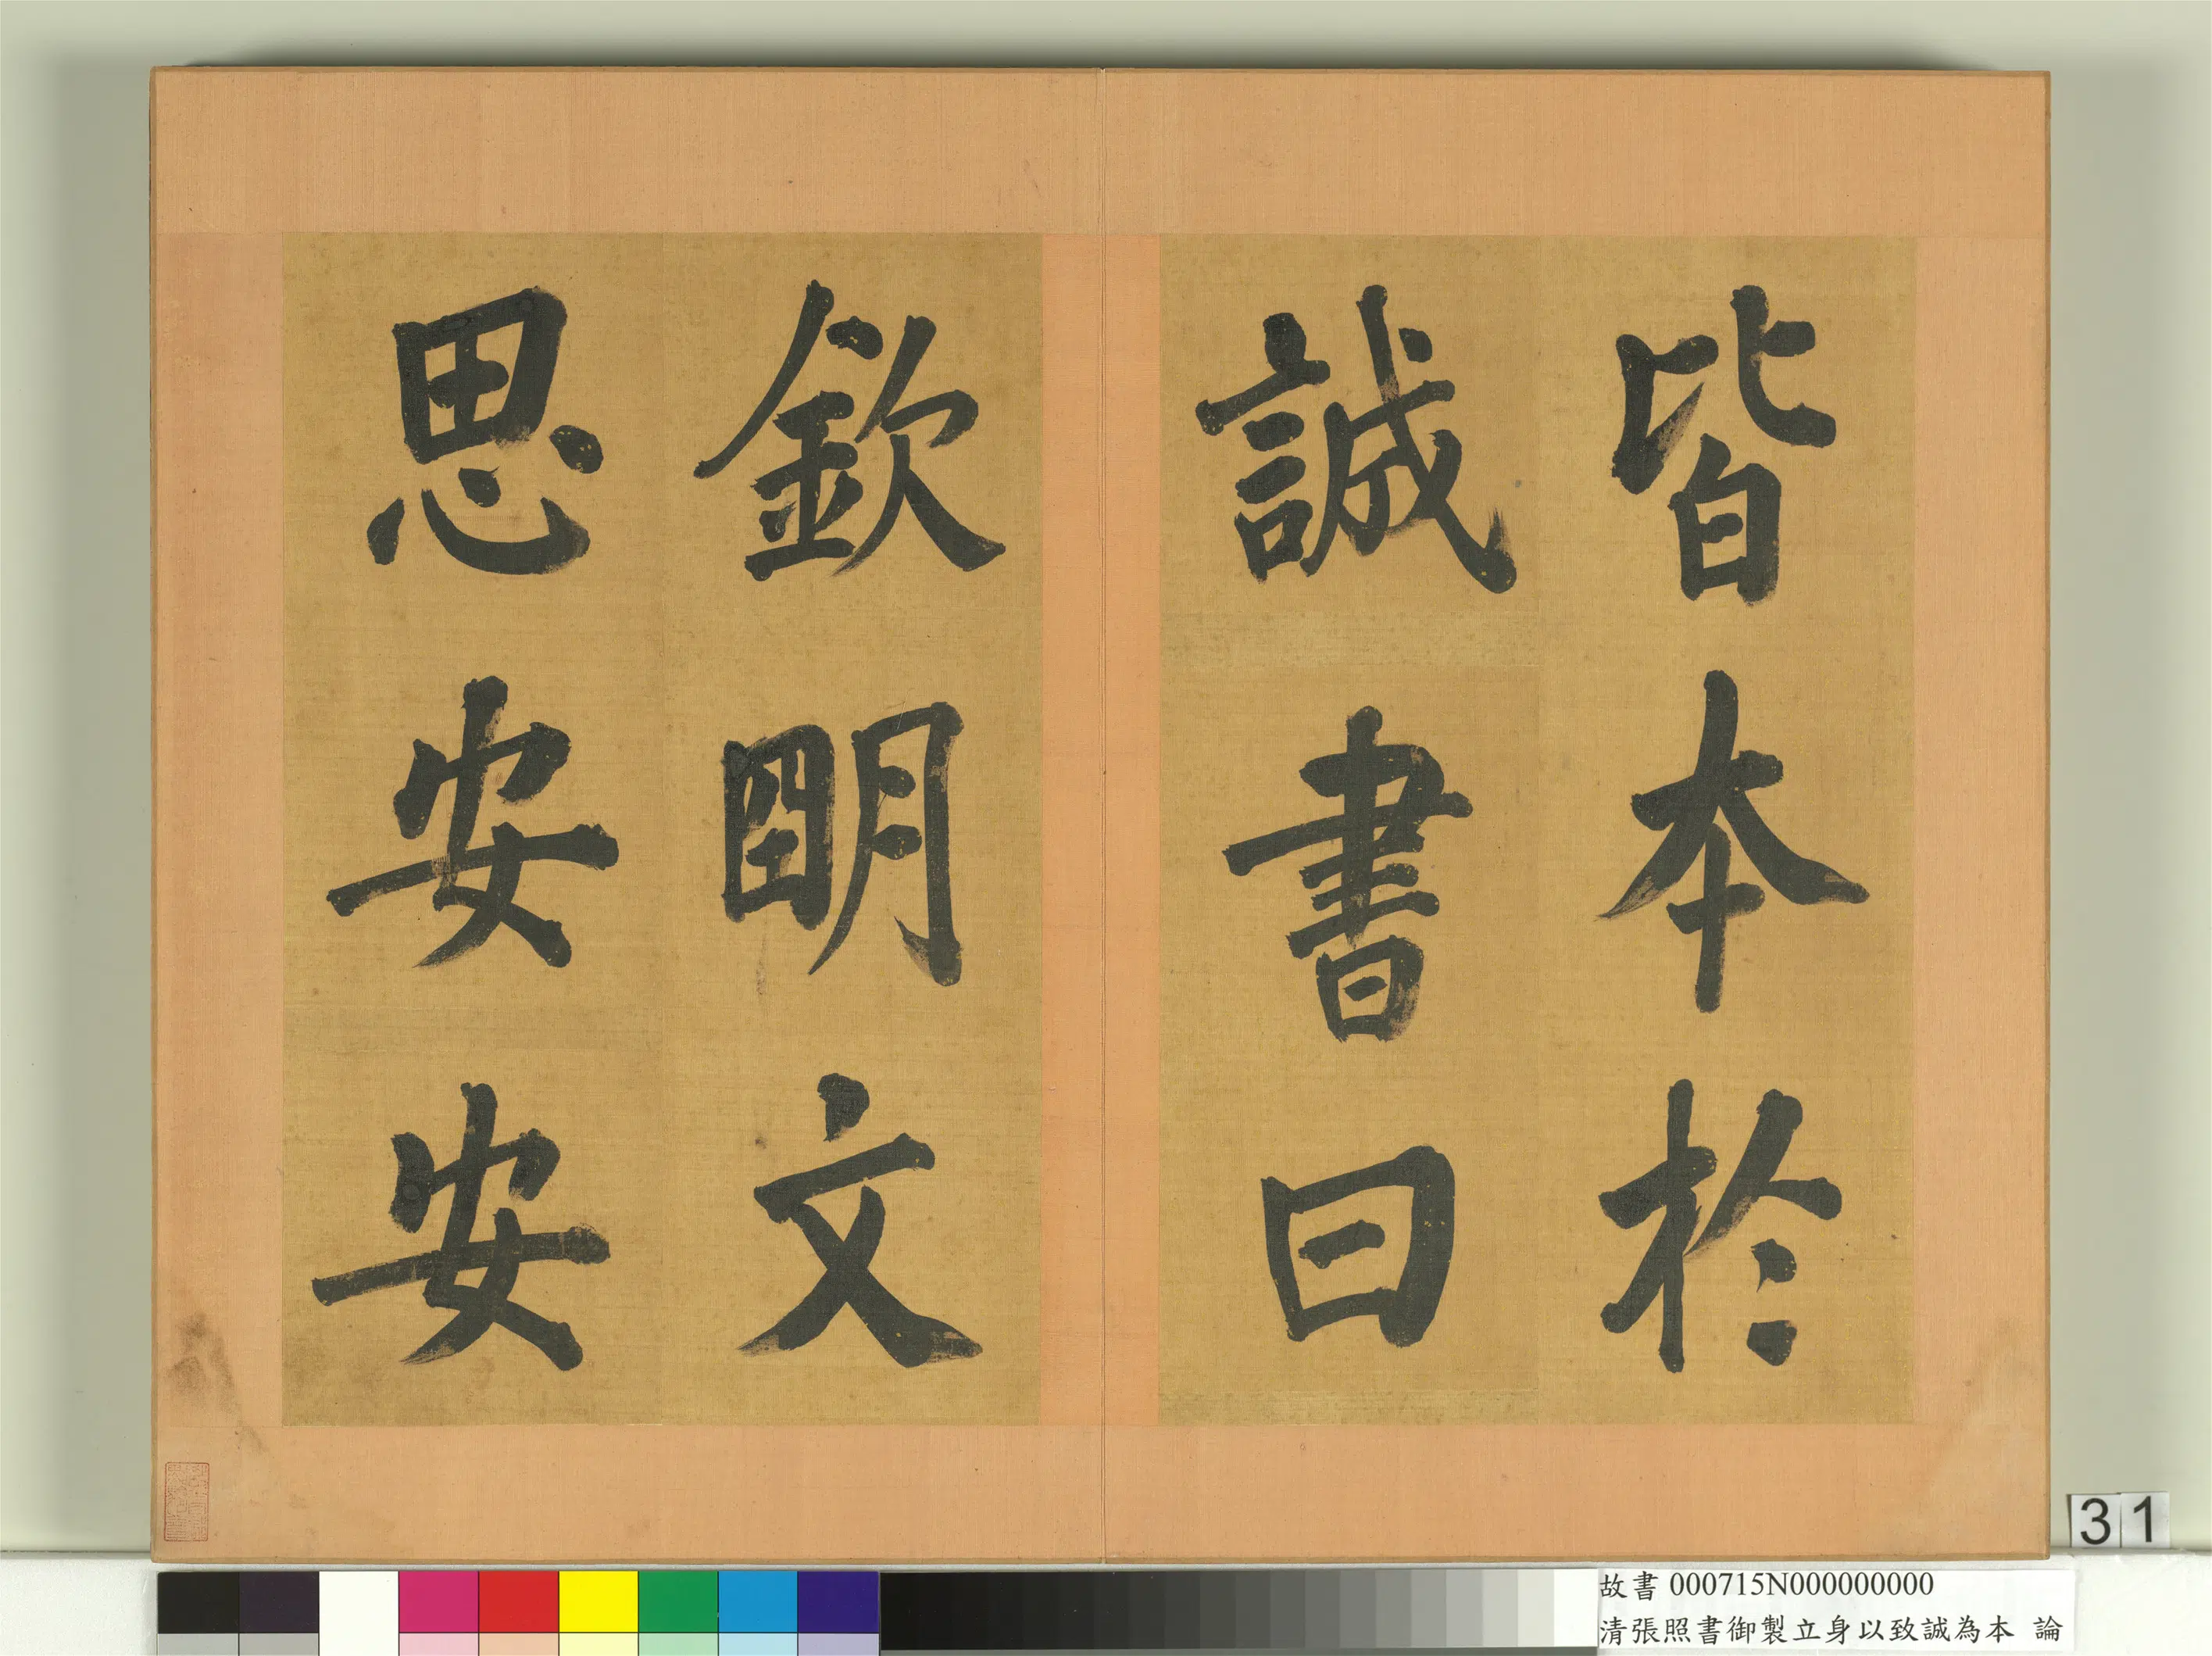 皆本於
誠書曰
欽明文
思安安
31
故書 000715N000000000
清張照書御製立身以致誠為本 論